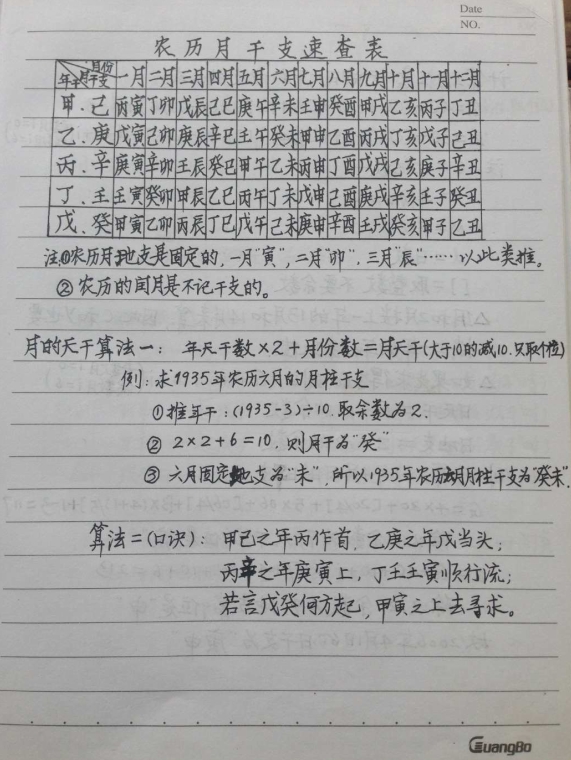 Date
NO.
农历月干支速查表
年干 月干支 月份 一月 二月 三月 四月 五月 六月 七月 八月 九月 十月 十一月 十二月
甲.己 丙寅 丁卯 戊辰 己巳 庚午 辛未 壬申 癸酉 甲戌 乙亥 丙子 丁丑
乙.庚 戊寅 己卯 庚辰 辛巳 壬午 癸未 甲申 乙酉 丙戌 丁亥 戊子 己丑
丙.辛 庚寅 辛卯 壬辰 癸巳 甲午 乙未 丙申 丁酉 戊戌 己亥 庚子 辛丑
丁.壬 壬寅 癸卯 甲辰 乙巳 丙午 丁未 戊申 己酉 庚戌 辛亥 壬子 癸丑
戊.癸 甲寅 乙卯 丙辰 丁巳 戊午 己未 庚申 辛酉 壬戌 癸亥 甲子 乙丑
注:①农历月地支是固定的,一月"寅",二月"卯",三月"辰"……以此类推。
②农历的闰月是不记干支的。
月的天干算法一: 年天干数×2+月份数=月天干(大于10的减10.只取个位)
例:求1935年农历六月的月柱干支
①推年干:(1935-3)÷10.取余数为2.
② 2×2+6=10.则月干为"癸"
③ 六月固定地支为"未".所以1935年农历六月月柱干支为"癸未".
算法二(口诀): 甲己之年丙作首,乙庚之年戊当头;
丙辛之年庚寅上,丁壬壬寅顺行流;
若言戊癸何方起,甲寅之上去寻求。
GuangBo